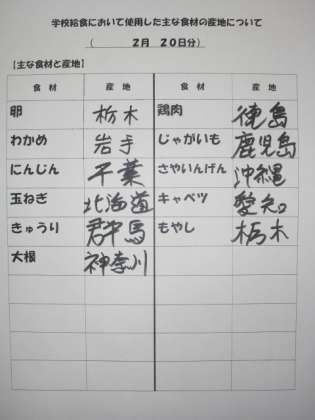 学校給食において使用した主な食材の産地について
（　2月　20日分）
【主な食材と産地】
食材 産地 食材 産地
卵 栃木 鶏肉 徳島
わかめ 岩手 じゃがいも 鹿児島
にんじん 千葉 さやいんげん 沖縄
玉ねぎ 北海道 キャベツ 愛知
きゅうり 群馬 もやし 栃木
大根 神奈川